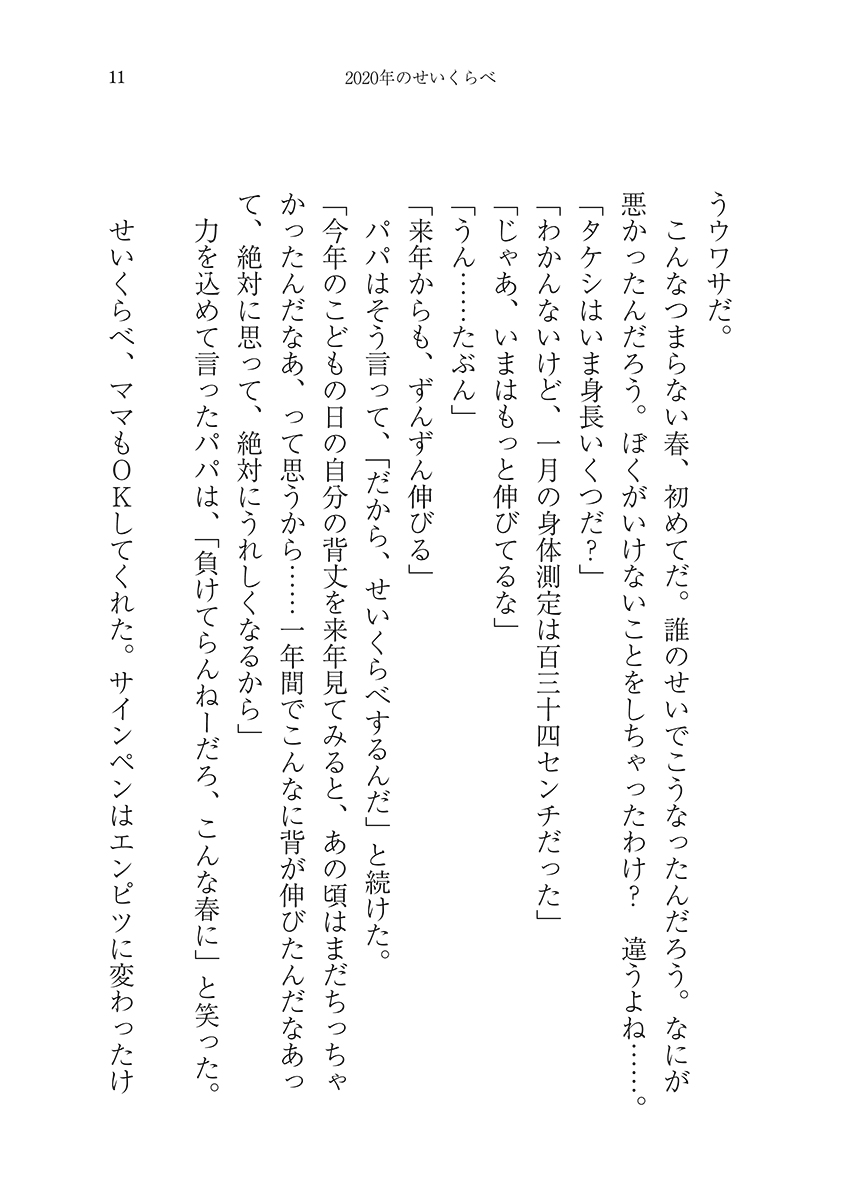 11
2020年のせいくらべ
うウワサだ。
こんなつまらない春、初めてだ。誰のせいでこうなったんだろう。なにが
悪かったんだろう。ぼくがいけないことをしちゃったわけ？　違うよね……。
「タケシはいま身長いくつだ？」
「わかんないけど、一月の身体測定は百三十四センチだった」
「じゃあ、いまはもっと伸びてるな」
「うん……たぶん」
「来年からも、ずんずん伸びる」
パパはそう言って、「だから、せいくらべするんだ」と続けた。
「今年のこどもの日の自分の背丈を来年見てみると、あの頃はまだちっちゃ
かったんだなあ、って思うから……一年間でこんなに背が伸びたんだなあっ
て、絶対に思って、絶対にうれしくなるから」
力を込めて言ったパパは、「負けてらんねーだろ、こんな春に」と笑った。
せいくらべ、ママもＯＫしてくれた。サインペンはエンピツに変わったけ